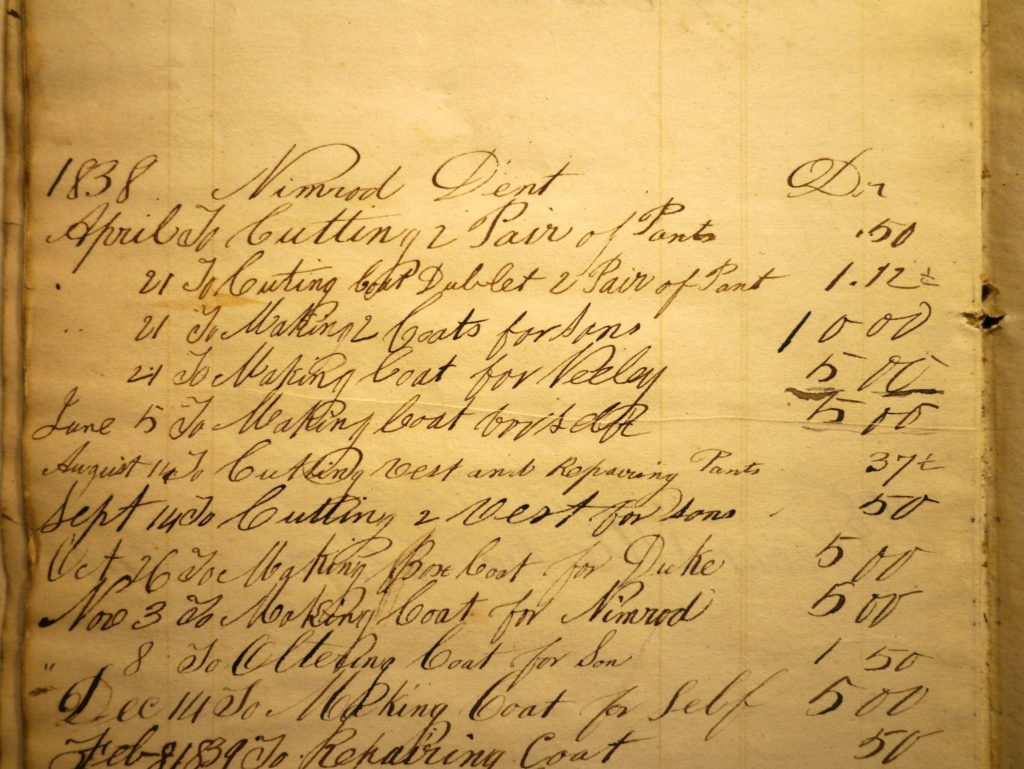 1838 Nimrod Dent Dr
April To Cutting 2 Pair of Pants .50
21 To Cuting Coat Dublet 2 Pair of Pant 1.12½
" 21 To Making 2 Coats for Sons 10 00
21 To Making Coat for Neeley 5 00
June 5 To Making Coat for Self 5 00
August 14 To Cutting Vest and Repairing Pants 37½
Sept 14 To Cutting 2 Vest for Sons 50
Oct 26 To Making Box Coat for Duke 5 00
Nov 3 To Making Coat for Nimrod 5 00
" 8 To Oltering Coat for Son 1 50
Dec 14 To Making Coat for Self 5 00
Feb 8 1839 To Repairing Coat 50